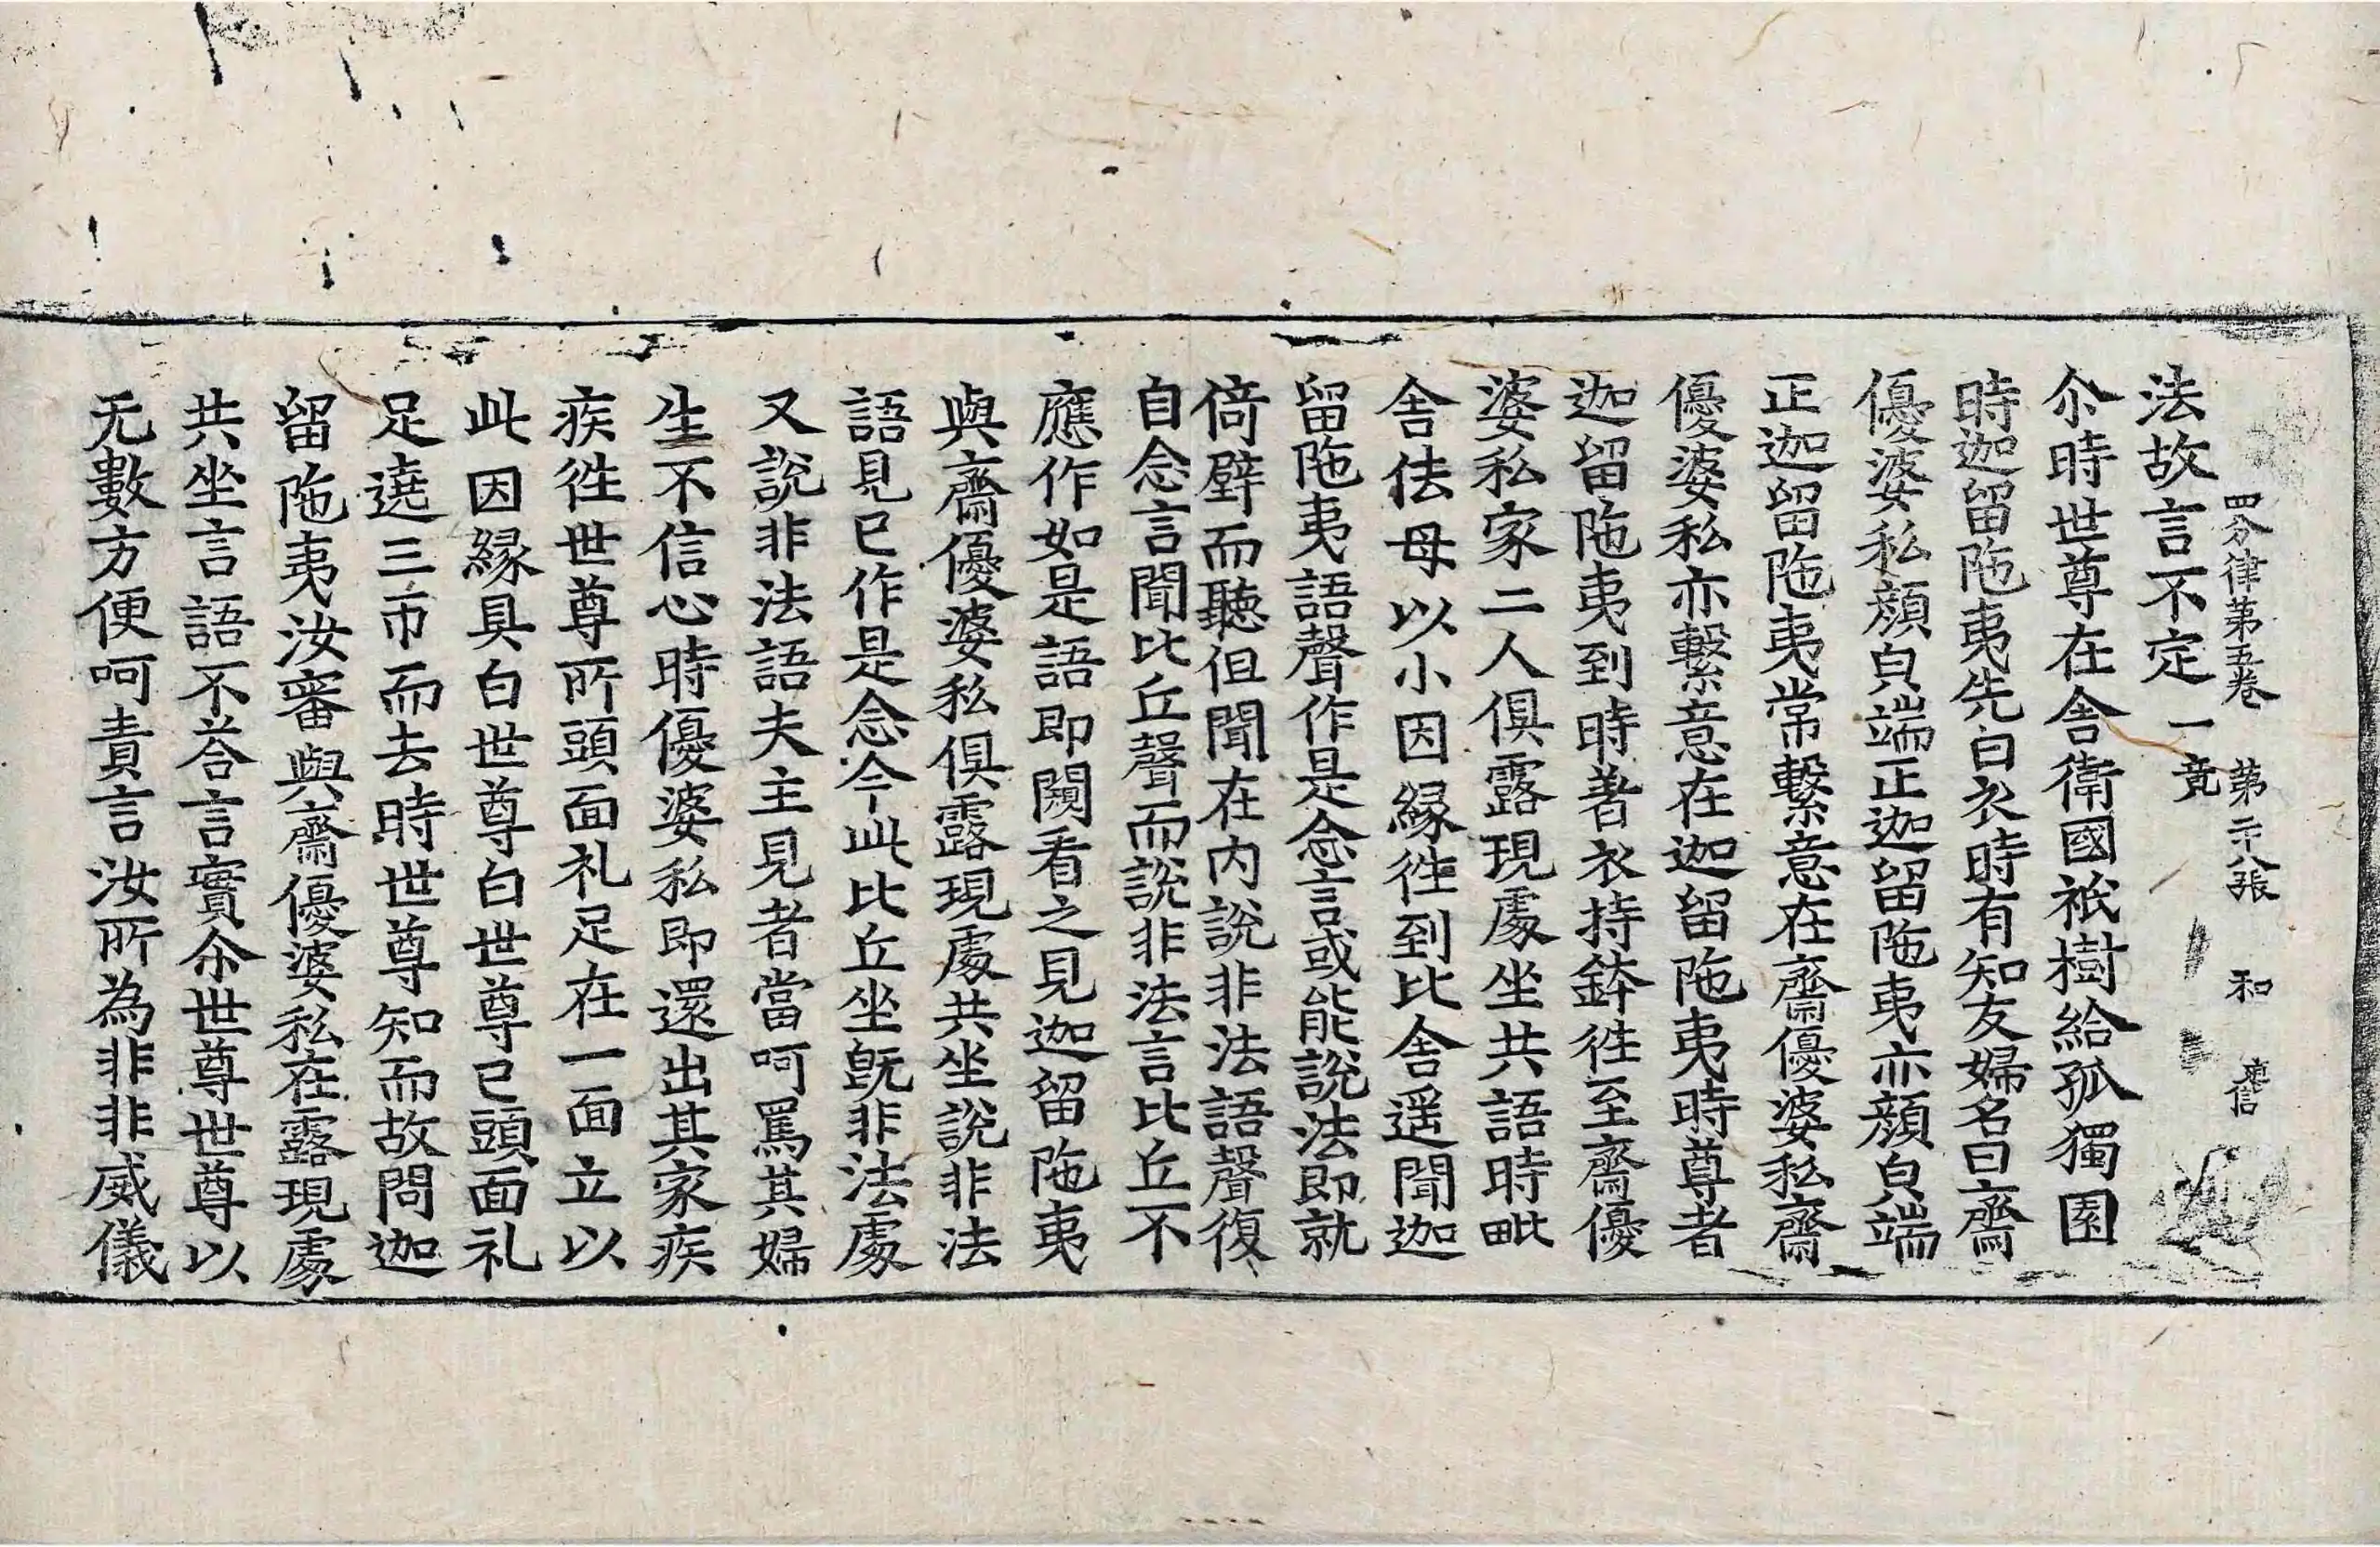 四分律第五卷 第二十八張 和
法故言不定一竟
尒時世尊在舎衛國祇樹給孤獨園
時迦留陁夷先白衣時有知友婦名曰齋
優婆私顔皃端正迦留陁夷亦顔皃端
正迦留陁夷常繫意在齋優婆私齋
優婆私亦繫意在迦留陁夷時尊者
迦留陁夷到時著衣持鉢徃至齋優
婆私家二人俱露現處坐共語時毗
舎佉母以小因縁徃到比舎遥聞迦
留陁夷語聲作是念言或能說法即就
倚壁而聽但聞在内說非法語聲復
自念言聞比丘聲而說非法言比丘不
應作如是語即闚看之見迦留陁夷
與齋優婆私俱露現處共坐說非法
語見已作是念今此比丘坐旣非法處
又說非法語夫主見者當呵罵其婦
生不信心時優婆私即還出其家疾
疾徃世尊所頭面礼足在一面立以
此因縁具白世尊白世尊已頭面礼
足遶三帀而去時世尊知而故問迦
留陁夷汝審與齋優婆私在露現處
共坐言語不荅言實尒世尊世尊以
无數方便呵責言汝所為非非威儀